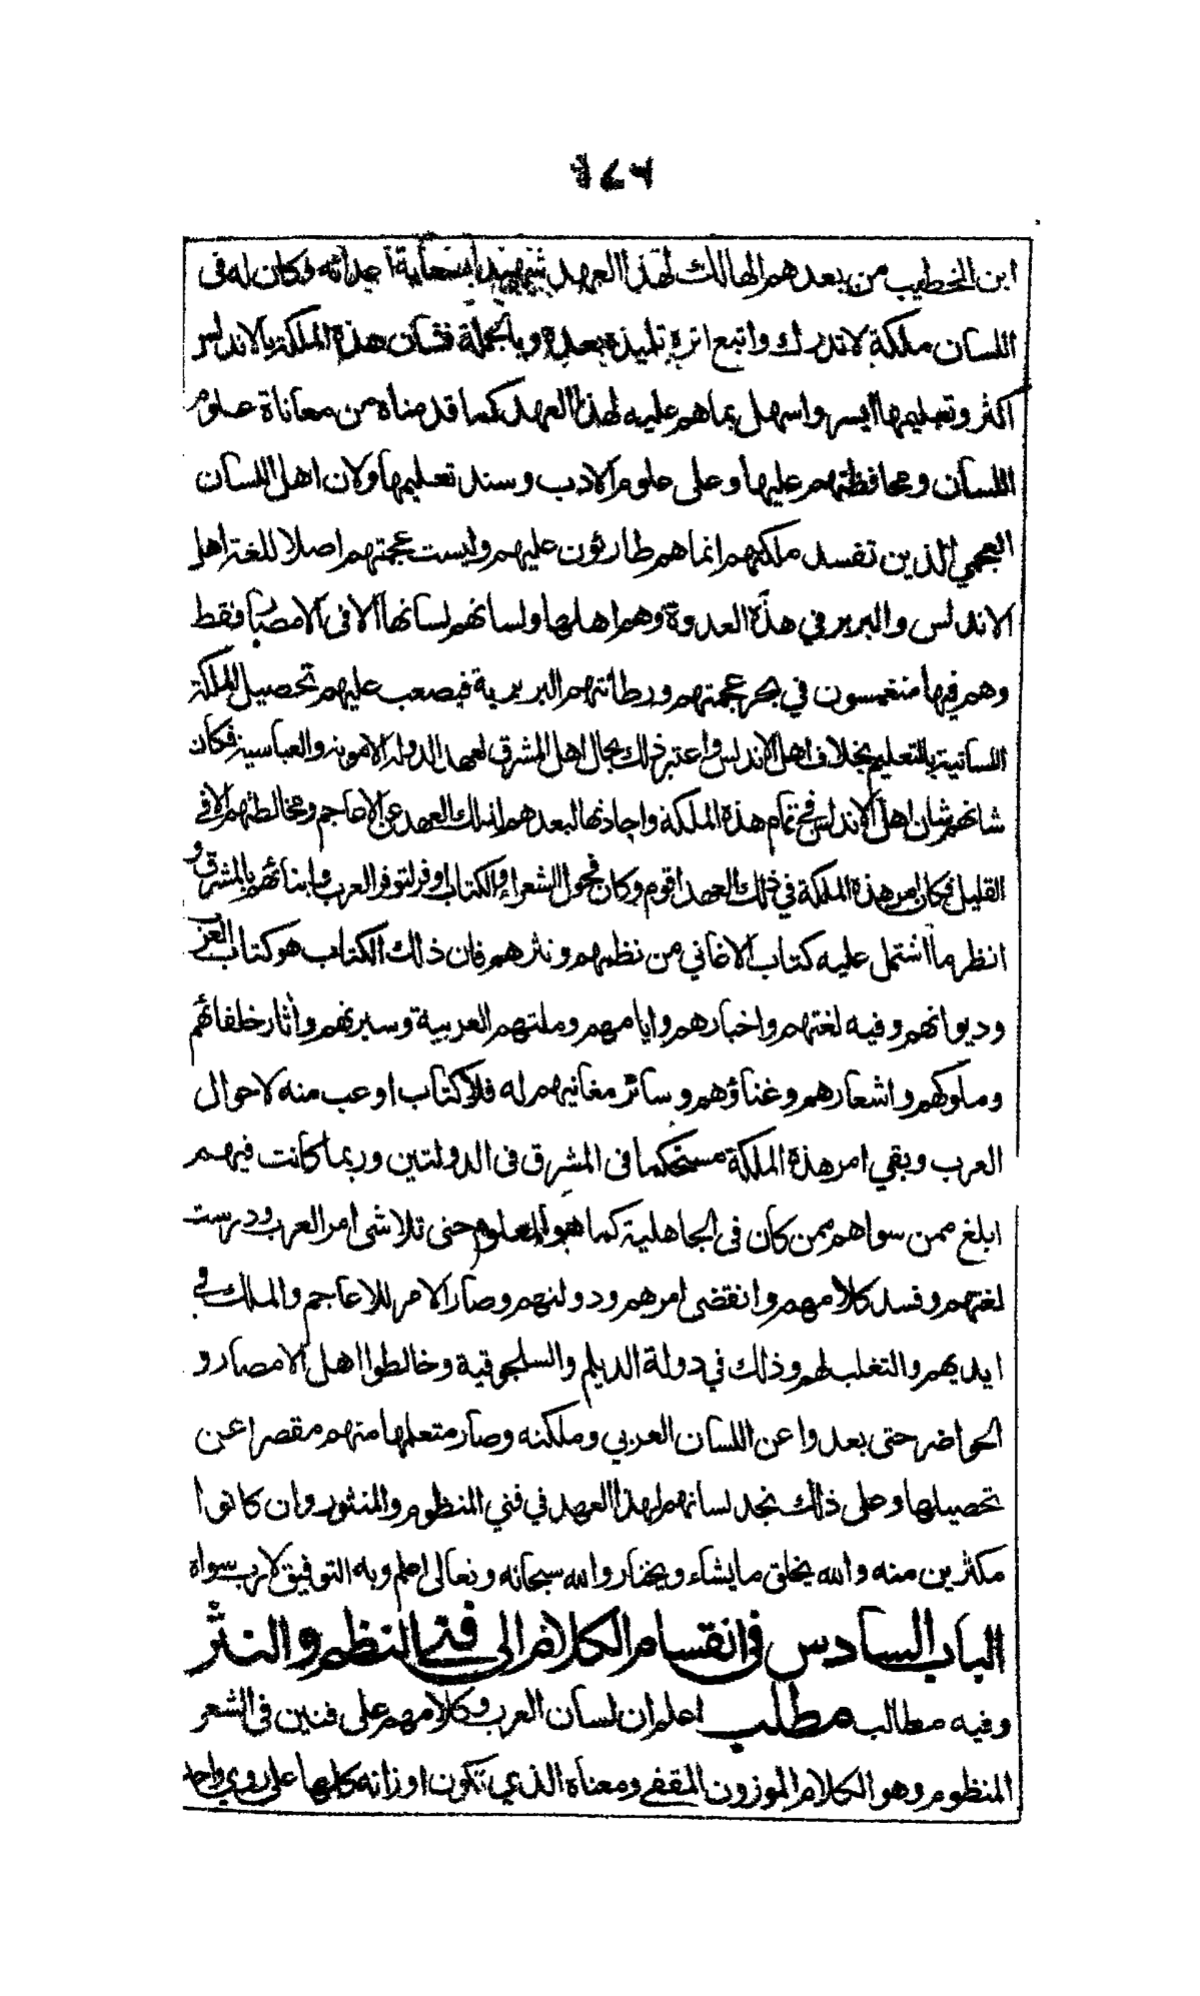 ابن الخطيب من بعدهم الهالك لهذا العهد شهيدا بسعاية اعدائه وكان له فى
اللسان ملكة لاتدرك واتبع اثره تلميذه بعده وبالجملة فشان هذه الملكة بالاندلس
اكثر وتعليمها ايسر واسهل بماهم عليه لهذا العهد كما قدمناه من معاناة علوم
اللسان ومحافظتهم عليها وعلى علوم الادب وسند تعليمها ولان اهل اللسان
العجمي الذين تفسد ملكتهم انماهم طارئون عليهم وليست عجمتهم اصلا للغة اهل
الاندلس والبربر في هذه العدوة وهم اهلها ولسانهم لسانها الا فى الامصار فقط
وهم فيها منغمسون في بحر عجمتهم ورطانتهم البربرية فيصعب عليهم تحصيل الملكة
اللسانية بالتعليم بخلاف اهل الاندلس واعتبر ذلك بحال اهل المشرق لعهد الدولة الاموية والعباسية فكان
شانهم شان اهل الاندلس في تمام هذه الملكة واجادتها لبعدهم لذلك العهد عن الاعاجم ومخالطتهم الا في
القليل فكان امر هذه الملكة في ذلك العهد اقوم وكان فحول الشعراء والكتاب اوفر لتوفر العرب وابنائهم بالمشرق و
انظر ما اشتمل عليه كتاب الاغاني من نظمهم ونثرهم فان ذلك الكتاب هو كتاب العرب
وديوانهم وفيه لغتهم واخبارهم وايامهم وملتهم العربية وسيرتهم وآثار خلفائهم
وملوكهم واشعارهم وغناؤهم وسائر مغانيهم له فلا كتاب اوعب منه لاحوال
العرب وبقي امر هذه الملكة مستحكما فى المشرق فى الدولتين وربما كانت فيهم
ابلغ ممن سواهم ممن كان فى الجاهلية كما هو المعلوم حتى تلاشى امر العرب ودرست
لغتهم وفسد كلامهم وانقضى امرهم ودولتهم وصار الامر للاعاجم والملك في
ايديهم والتغلب لهم وذلك في دولة الديلم والسلجوقية وخالطوا اهل الامصار و
الحواضر حتى بعدوا عن اللسان العربي وملكته وصار متعلمها منهم مقصرا عن
تحصيلها وعلى ذلك نجد لسانهم لهذا العهد في فني المنظوم والمنثور وان كانوا
مكثرين منه والله يخلق مايشاء ويختار والله سبحانه وتعالى اعلم وبه التوفيق لارب سواه
الباب السادس فى انقسام الكلام الى فني النظم والنثر
وفيه مطالب مطلب اعلم ان لسان العرب وكلامهم على فنين فى الشعر
المنظوم وهو الكلام الموزون المقفى ومعناه الذي تكون اوزانه كلها على روي واحد